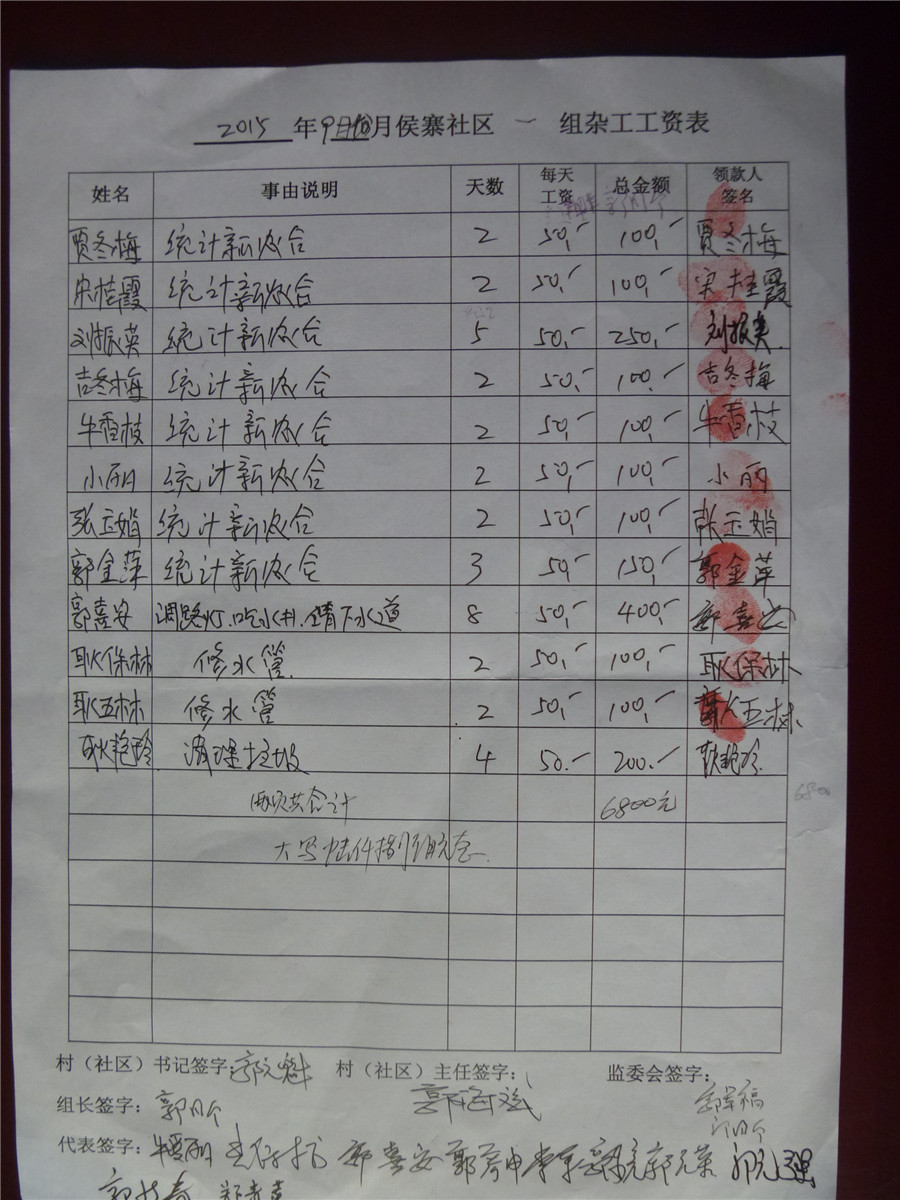 2015 年9月份月侯寨社区 一 组杂工工资表
姓名 事由说明 天数 每天工资 总金额 领款人签名
贾冬梅 统计新农合 2 50.- 100.- 贾冬梅
宋桂霞 统计新农合 2 50.- 100.- 宋桂霞
刘振英 统计新农合 5 50.- 250.- 刘振英
吉冬梅 统计新农合 2 50.- 100.- 吉冬梅
牛香枝 统计新农合 2 50.- 100.- 牛香枝
小丽 统计新农合 2 50.- 100.- 小丽
张玉娟 统计新农合 2 50.- 100.- 张玉娟
郭金萍 统计新农合 3 50.- 150.- 郭金萍
郭喜安 调路灯.吃水井.清下水道 8 50.- 400.- 郭喜安
耿保林 修水管 2 50.- 100.- 耿保林
耿五林 修水管 2 50.- 100.- 耿五林
耿艳玲 清理垃圾 4 50.- 200.- 耿艳玲
两项共合计 6800元
大写
村（社区）书记签字： 村（社区）主任签字： 监委会签字：
组长签字：
代表签字： 郭喜安